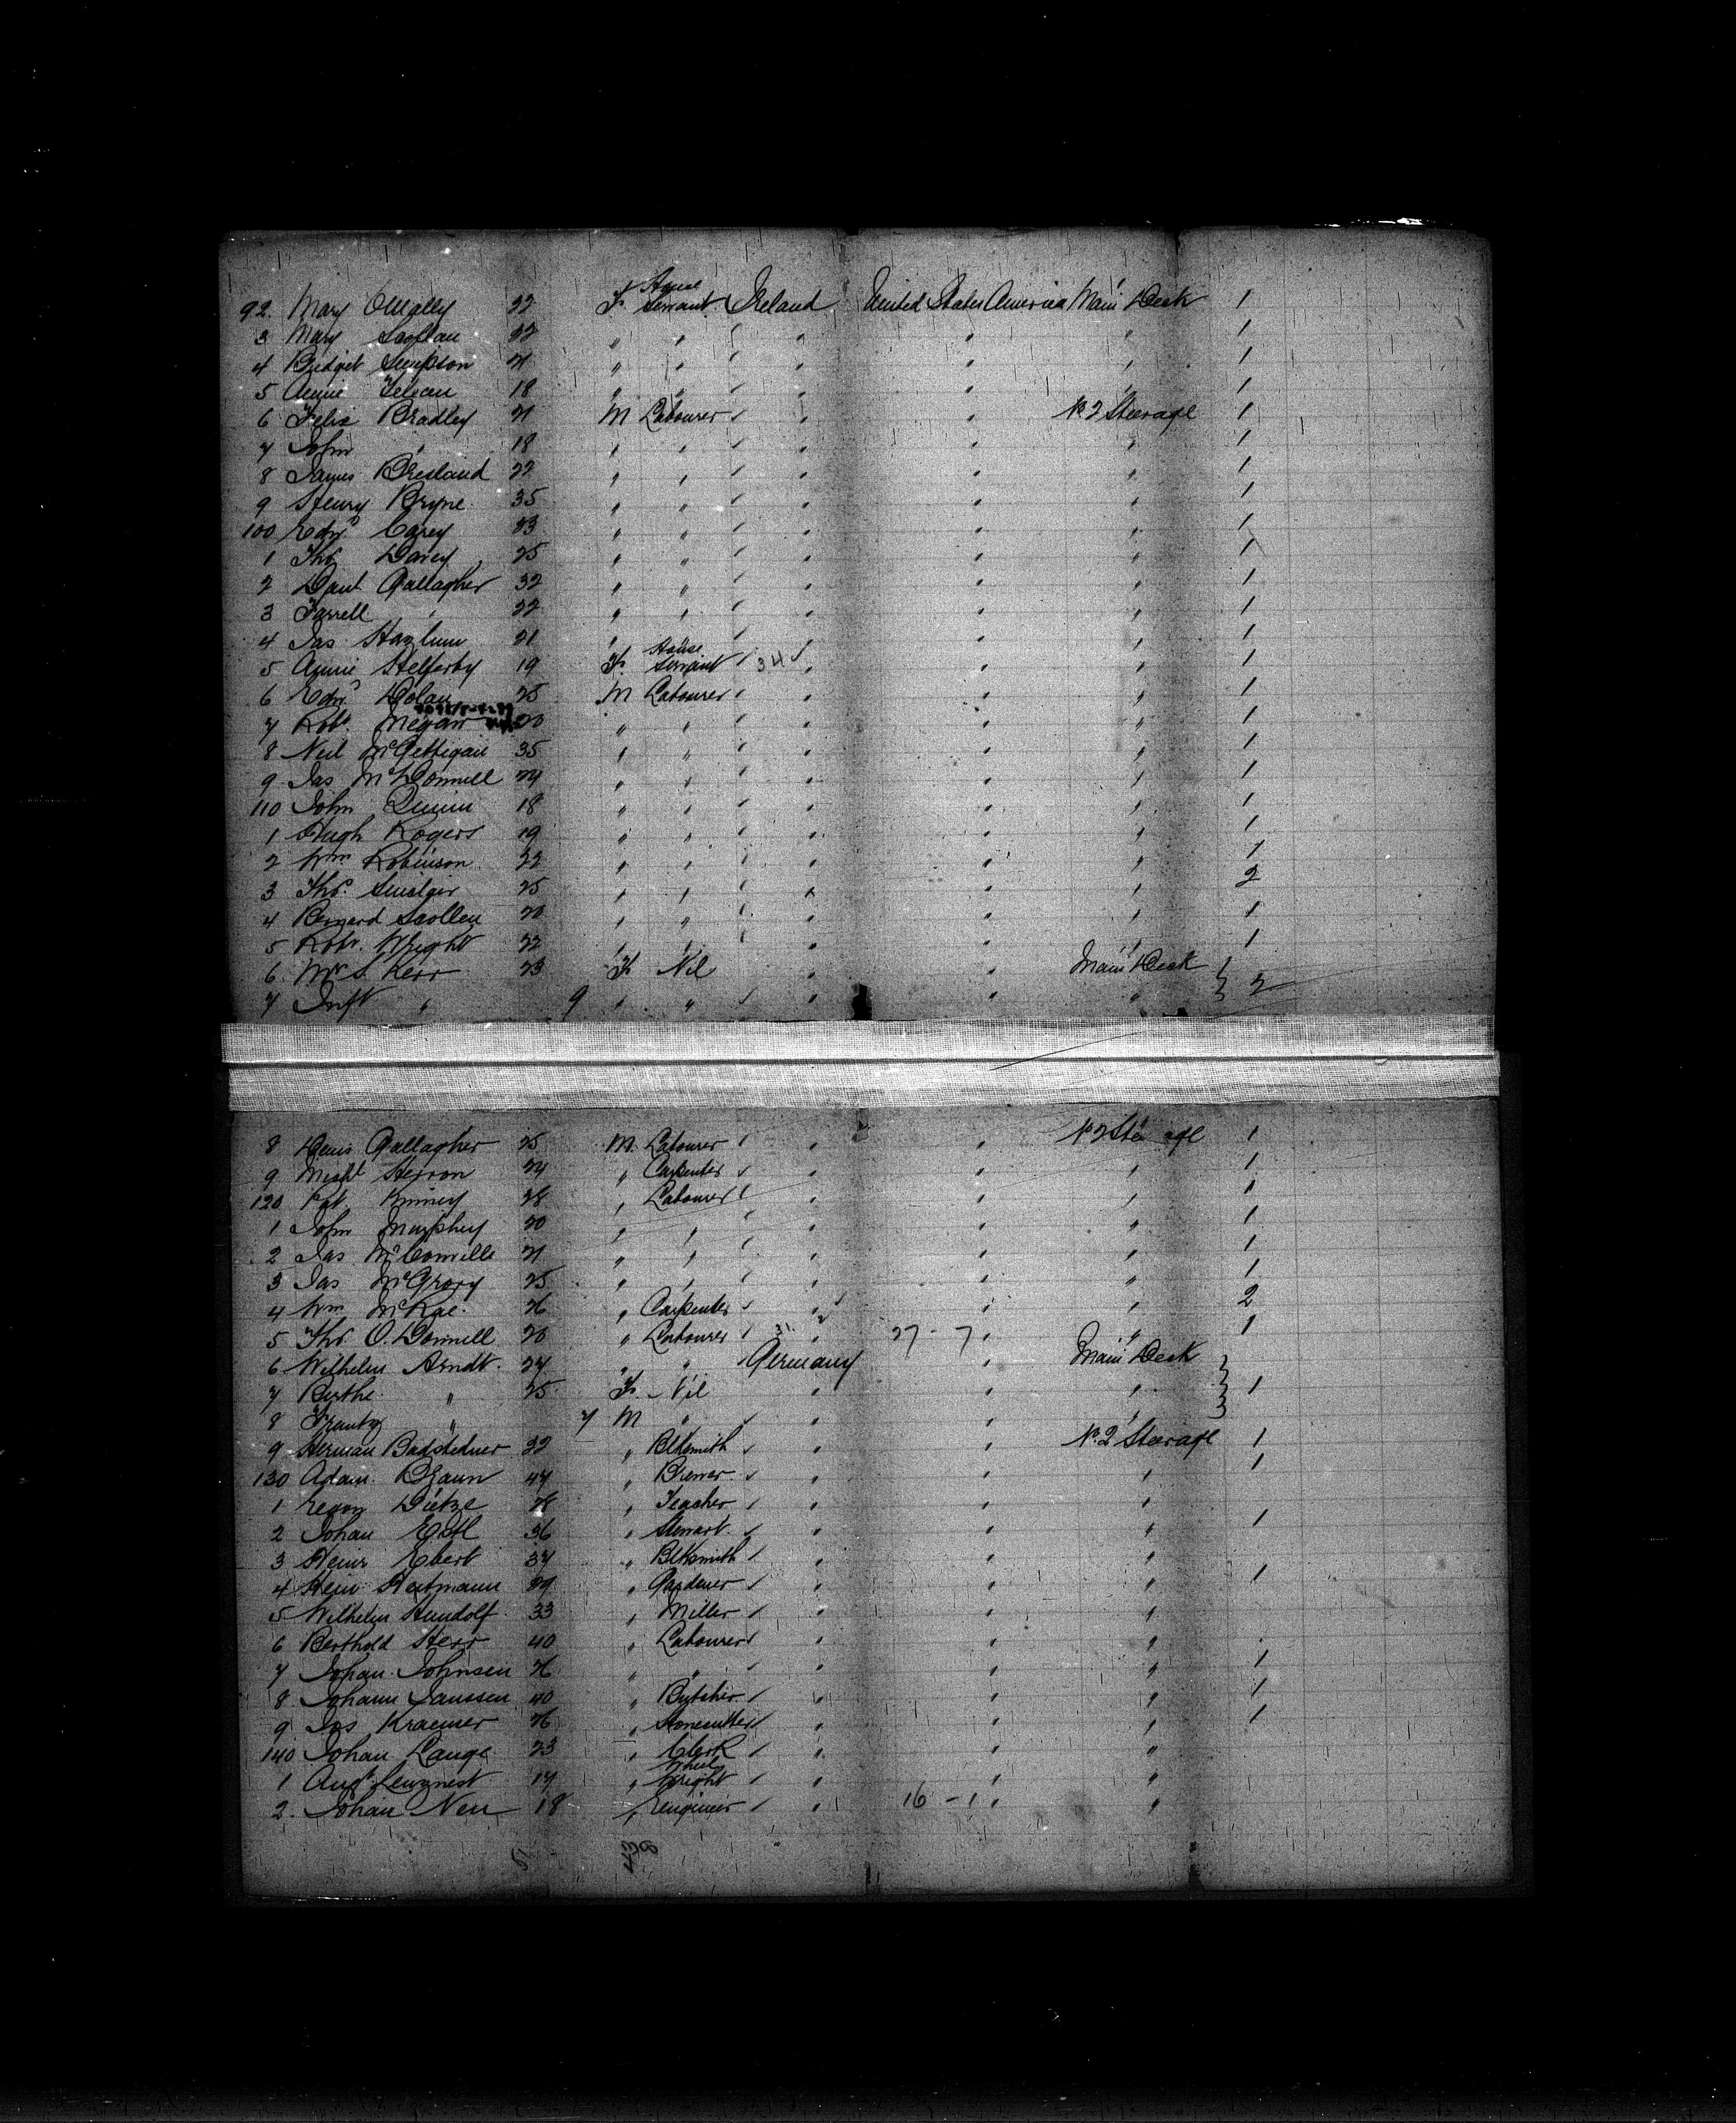 92. Mary OMally 22 F. House Servant Ireland United States America Main Deck 1
3 Mary Scollan 22 " " " " " 1
4 Bridget Simpson 21 " " " " " 1
5 Annie 18 " " " " " 1
6 Felix Bradley 21 M Labourer " " No 2 Steerage 1
7 John " 18 " " " " " 1
8 James Bresland 22 " " " " " 1
9 Henry Bryne 35 " " " " " 1
100 Edwd Carey 23 " " " " " 1
1 Thos Darcy 25 " " " " " 1
2 Danl Gallagher 32 " " " " " 1
3 Farrell " 22 " " " " " 1
4 Jas 21 " " " " " 1
5 Annie 19 F. House Servant 34 " " " 1
6 Edwd Dolan 25 M Labourer " " " 1
7 Robt. Megaw 20 " " " " " 1
8 Neil McGettigan 35 " " " " " 1
9 Jas McDonnell 24 " " " " " 1
110 John Quinn 18 " " " " " 1
1 Hugh Rogers 19 " " " " " 1
2 Wm Robinson 22 " " " " " 1
3 Thos. Sinclair 25 " " " " " 2
4 Bernard Scollen 20 " " " " " 1
5 Robt. Wright 22 " " " " " 1
6. Mrs S. Kerr 23 F. Nil " " Main Deck
7 Inft " 9 " " " " " 2
8 Denis Gallagher 25 M. Labourer " " No 2 Ste age 1
9 Michl Herron 24 " Carpenter " " " 1
120 Pat. Kinney 28 " Labourer " " " 1
1 John Murphy 20 " " " " " 1
2 Jas McConville 21 " " " " " 1
3 Jas McGrory 25 " " " " " 1
4 Wm McRae. 26 " Carpenter " " " 2
5 Thos. O.Donnell 20 " Labourer 31. " 27 - 7 " " 1
6 Wilhelm Arndt. 24 " " Germany " Main Deck
7 Berthe. " 25 F. Nil " " " 1
8 Frantz " 7 M " " " "
9 Herman Badstedner 32 " Blksmith " " No. 2 Steerage 1
130 Adam. Braun 44 " Brewer. " " " 1
1 Egon Dietze 28 " Teacher " " "
2 Johan 36 " Stewart. " " " 1
3 Heinr Ebert 34 " Blksmith " " "
4 Hein. Heitmann 29 " Gardener " " " 1
5 Wilhelm Hundolf 33 " Miller " " "
6 Berthold Herr 40 " Labourer " " "
7 Johan. Johnsen 26 " " " " " 1
8 Johann Janssen 40 " Butcher " " " 1
9 Jos Kraemer 26 " Stonecutter " " " 1
140 Johan Lange 23 " Clerk " " "
1 Augt 17 " Wheel Wright " " "
2. Johan Neu 18 " Engineer " 16 - 1 " "
51